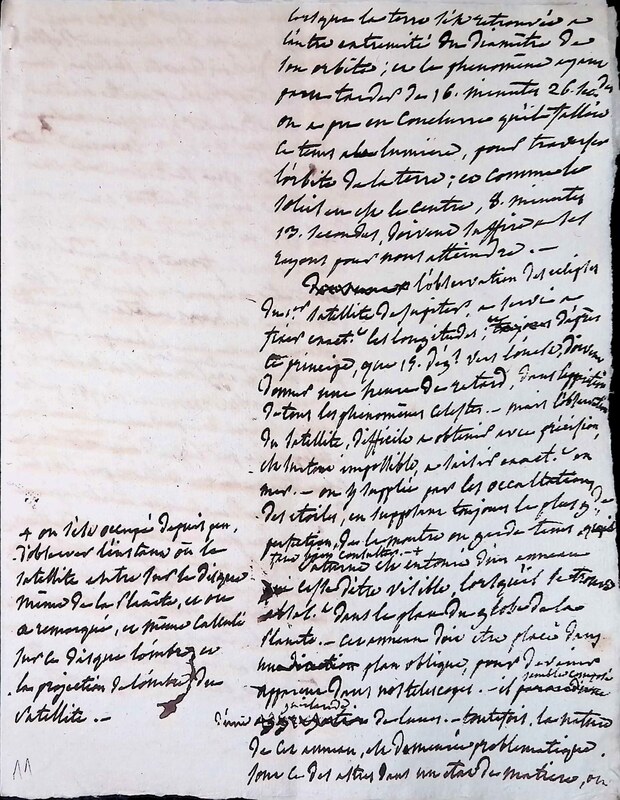 lorsque la terre s'est retrouvée a
l'autre extremité du diamètre de
son orbite; et le phenomène ayant
paru tarder de 16. minutes 26. secdes
on a pu en conclurre qu'il falloit
ce tems a la lumiere, pour traverser
l'orbite de la terre; et comme le
soleil en est le centre, 8. minutes
13. secondes, doivent suffire a ses
rayons pour nous atteindre. —
l'observation des eclipses
du 1er satellite de Jupiter, a servi a
fixer exact.t les longitudes; d'après
le principe, que 15. deg.s vers l'ouest, doivent
donner une heure de retard, dans l'apparition
de tous les phenomènes celestes. — mais l'observation
du satellite, difficile a obtenir avec précision,
est surtout impossible, a saisir exact.t en
mer. — on y supplée par les occultations
des etoiles, en supposant toujours la plus g.de
perfection, de la montre ou garde tems,
que l'on consulte. — +
Saturne est entouré d'un anneau
qui cesse d'être visible, lorsqu'il se trouve
dans le plan du globe de la
Planète. — cet anneau doit être placé dans
un plan oblique, pour devenir
apparent dans nos telescopes. — il semble composé
d'une guirlande de lunes. — toutefois, la nature
de cet anneau, est demeurée problematique.
sont ce des astres dans un etat de matiere, ou
+ on s'est occupé depuis peu,
d'observer l'instant où le
satellite entre sur le disque
même de la Planète, et on
a remarqué, et même calculé
sur ce disque l'ombre, et
la projection de l'ombre, du
satellite. —